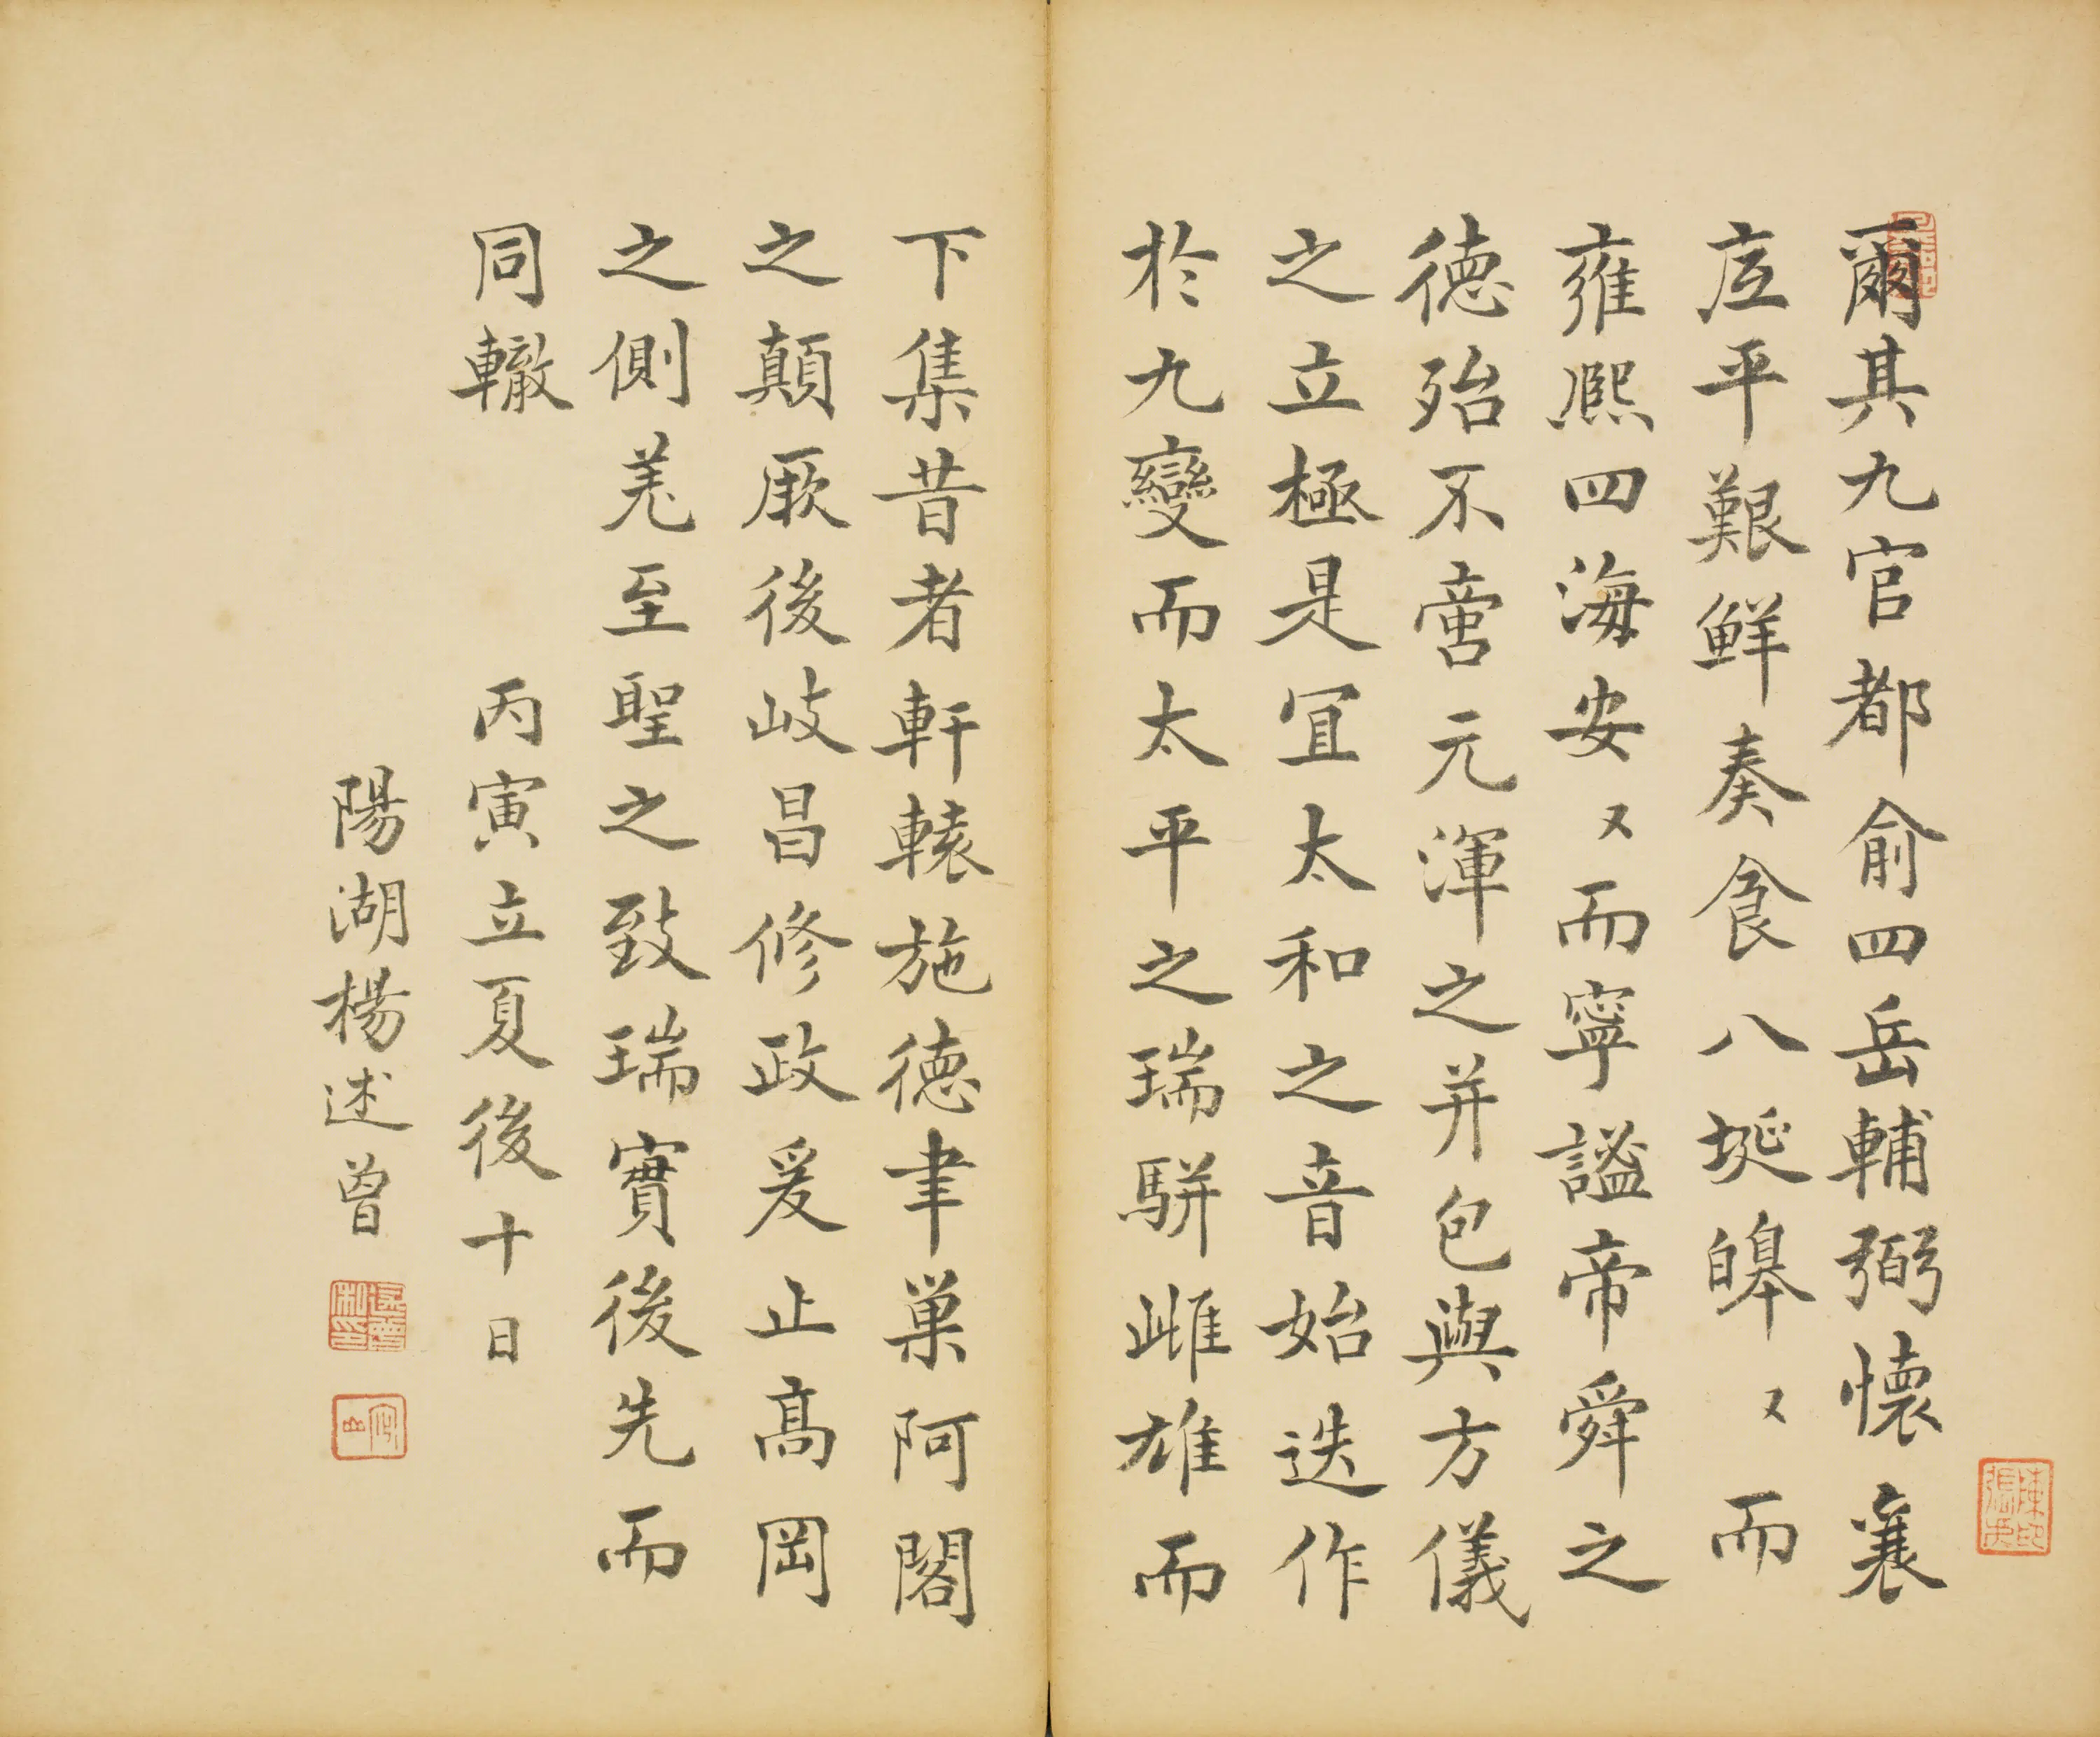 爾其九官都俞四岳輔弼懷襄
庀平艱鮮奏食八埏皥〻而
雍熙四海安〻而寧謐帝舜之
德殆不啻元渾之并包與方儀
之立極是宜太和之音始迭作
於九變而太平之瑞駢雌雄而
下集昔者軒轅施德聿巢阿閣
之顛厥後岐昌修政爰止高岡
之側羌至聖之致瑞實後先而
同轍
丙寅立夏後十日
陽湖楊述曾